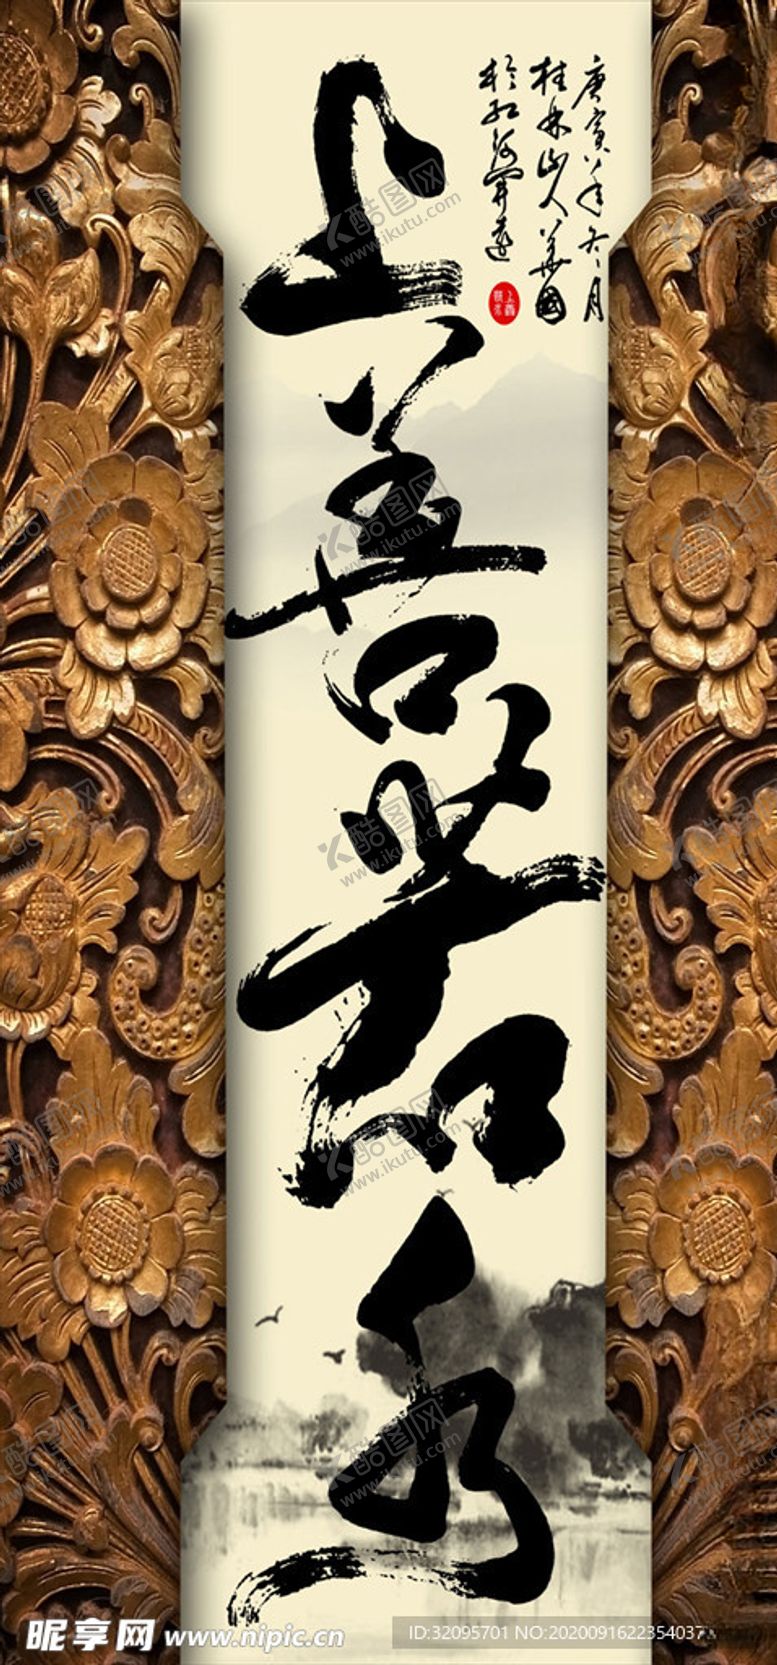 上善若水
庚寅年六月
桂林山人華國
於紅河
酷图网
www.ikutu.com
昵享网 www.nipic.cn
ID:32095701 NO:20200916223540374